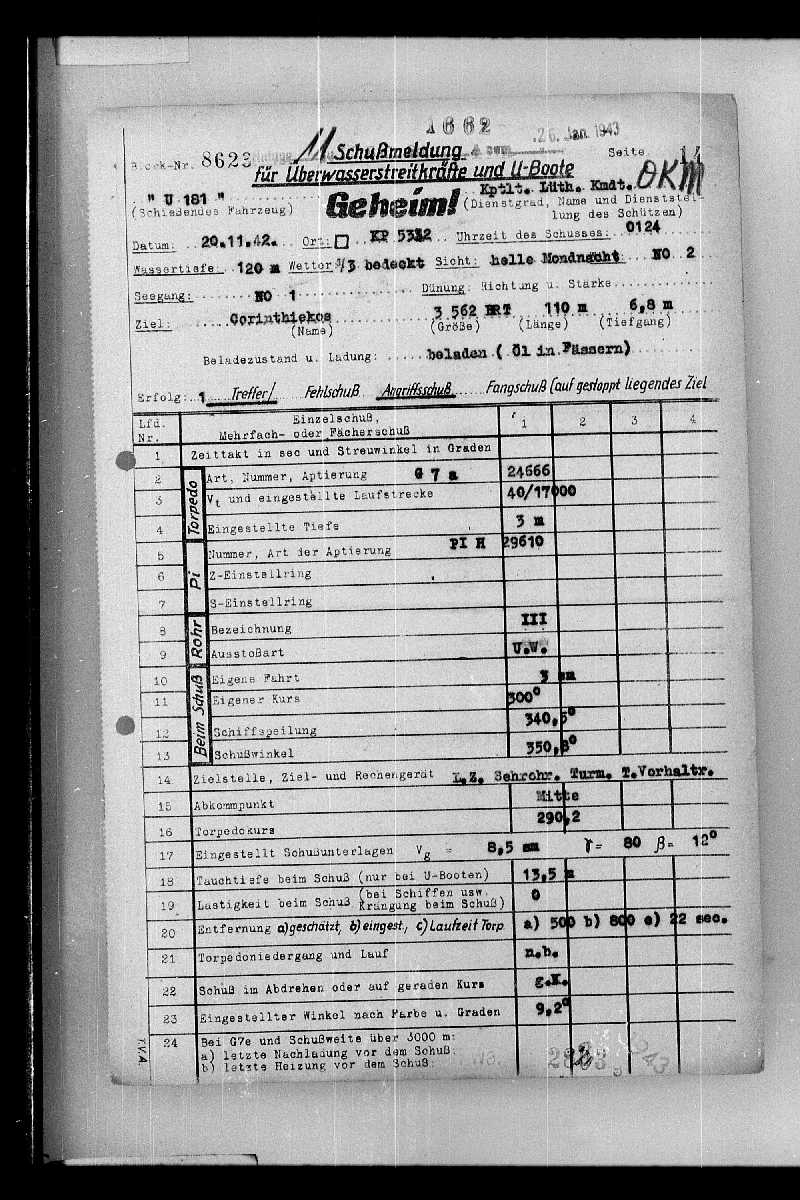 1662 26. Jan. 1943
Block-Nr. 8623 11 Schußmeldung Seite 14
für Überwasserstreitkräfte und U-Boote OKM
" U 181 " Geheim! Kptlt. Lüth. Kmdt.
(Schießendes Fahrzeug) (Dienstgrad, Name und Dienststel-
lung des Schützen)
Datum: 20.11.42. Ort: KP 5312 Uhrzeit des Schusses: 0124
Wassertiefe: 120 m Wetter 3/3 bedeckt Sicht: helle Mondnacht NO 2
Seegang: NO 1 Dünung: Richtung u. Stärke
Ziel: Corinthiekos 3 562 BRT 110 m 6,8 m
(Name) (Größe) (Länge) (Tiefgang)
Beladezustand u. Ladung: beladen ( Öl in Fässern)
Erfolg: 1 Treffer/ Fehlschuß Angriffsschuß Fangschuß (auf gestoppt liegendes Ziel
Lfd. Nr. Einzelschuß, Mehrfach- oder Fächerschuß 1 2 3 4
1 Zeittakt in sec und Streuwinkel in Graden
Torpedo
2 Art, Nummer, Aptierung G 7 a 24666
3 Vt und eingestellte Laufstrecke 40/17000
4 Eingestellte Tiefe 3 m
Pi
5 Nummer, Art der Aptierung PI H 29610
6 Z-Einstellring
7 S-Einstellring
Rohr
8 Bezeichnung III
9 Ausstoßart U.W.
Beim Schuß
10 Eigene Fahrt 3 sm
11 Eigener Kurs 300°
12 Schiffspeilung 340,5°
13 Schußwinkel 350,8°
14 Zielstelle, Ziel- und Rechengerät L.Z. Sehrohr. Turm. T.Vorhaltr.
15 Abkommpunkt Mitte
16 Torpedokurs 290,2
17 Eingestellt Schußunterlagen Vg = 8,5 sm γ= 80 β= 12°
18 Tauchtiefe beim Schuß (nur bei U-Booten) 13,5 m
19 Lastigkeit beim Schuß (bei Schiffen usw. Krängung beim Schuß) 0
20 Entfernung a) geschätzt, b) eingest., c) Laufzeit Torp a) 500 b) 800 c) 22 sec.
21 Torpedoniedergang und Lauf n.b.
22 Schuß im Abdrehen oder auf geraden Kurs g.K.
23 Eingestellter Winkel nach Farbe u. Graden 9,2°
24 Bei G7e und Schußweite über 3000 m:
a) letzte Nachladung vor dem Schuß:
b) letzte Heizung vor dem Schuß:
TVA